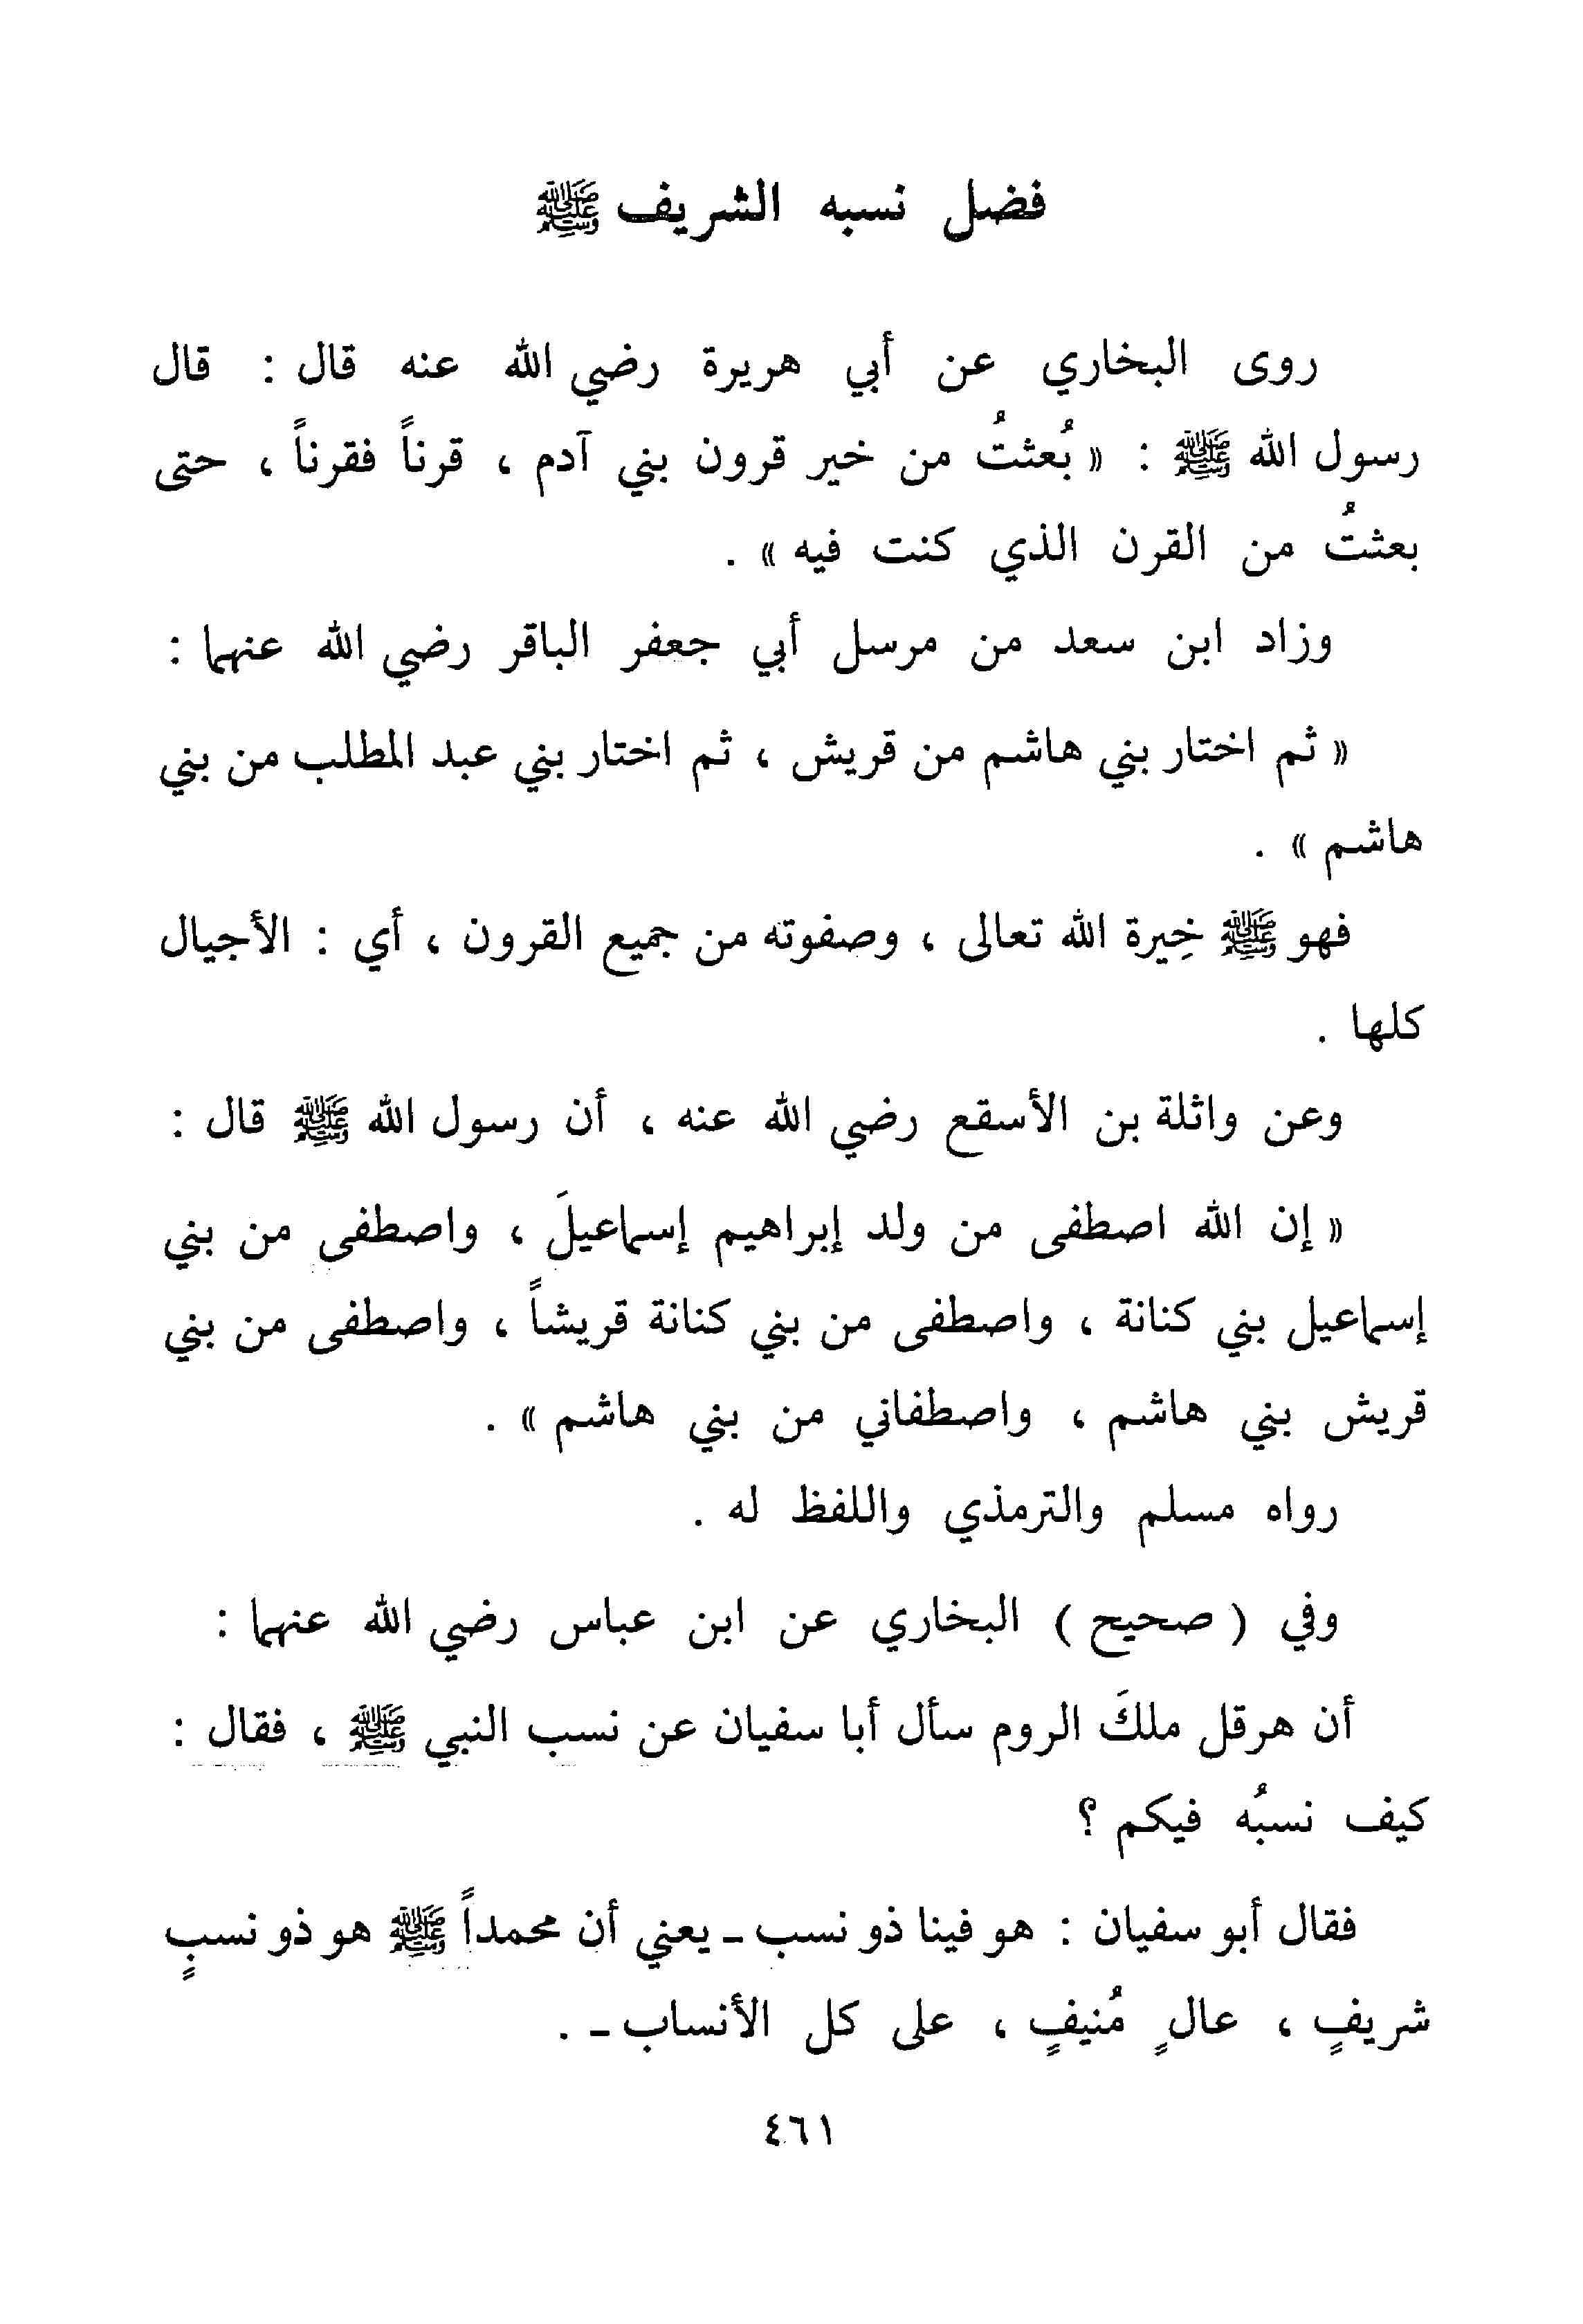 فضل نسبه الشريف ﷺ
روى البخاري عن أبي هريرة رضي الله عنه قال : قال
رسول الله ﷺ : « بُعثتُ من خير قرون بني آدم ، قرناً فقرناً ، حتى
بعثتُ من القرن الذي كنت فيه » .
وزاد ابن سعد من مرسل أبي جعفر الباقر رضي الله عنهما :
« ثم اختار بني هاشم من قريش ، ثم اختار بني عبد المطلب من بني
هاشم » .
فهو ﷺ خِيرة الله تعالى ، وصفوته من جميع القرون ، أي : الأجيال
كلها .
وعن واثلة بن الأسقع رضي الله عنه ، أن رسول الله ﷺ قال :
« إن الله اصطفى من ولد إبراهيم إسماعيلَ ، واصطفى من بني
إسماعيل بني كنانة ، واصطفى من بني كنانة قريشاً ، واصطفى من بني
قريش بني هاشم ، واصطفاني من بني هاشم » .
رواه مسلم والترمذي واللفظ له .
وفي ( صحيح ) البخاري عن ابن عباس رضي الله عنهما :
أن هرقل ملكَ الروم سأل أبا سفيان عن نسب النبي ﷺ ، فقال :
كيف نسبُه فيكم ؟
فقال أبو سفيان : هو فينا ذو نسب ـ يعني أن محمداً ﷺ هو ذو نسبٍ
شريفٍ ، عالٍ مُنيفٍ ، على كل الأنساب ـ .
٤٦١